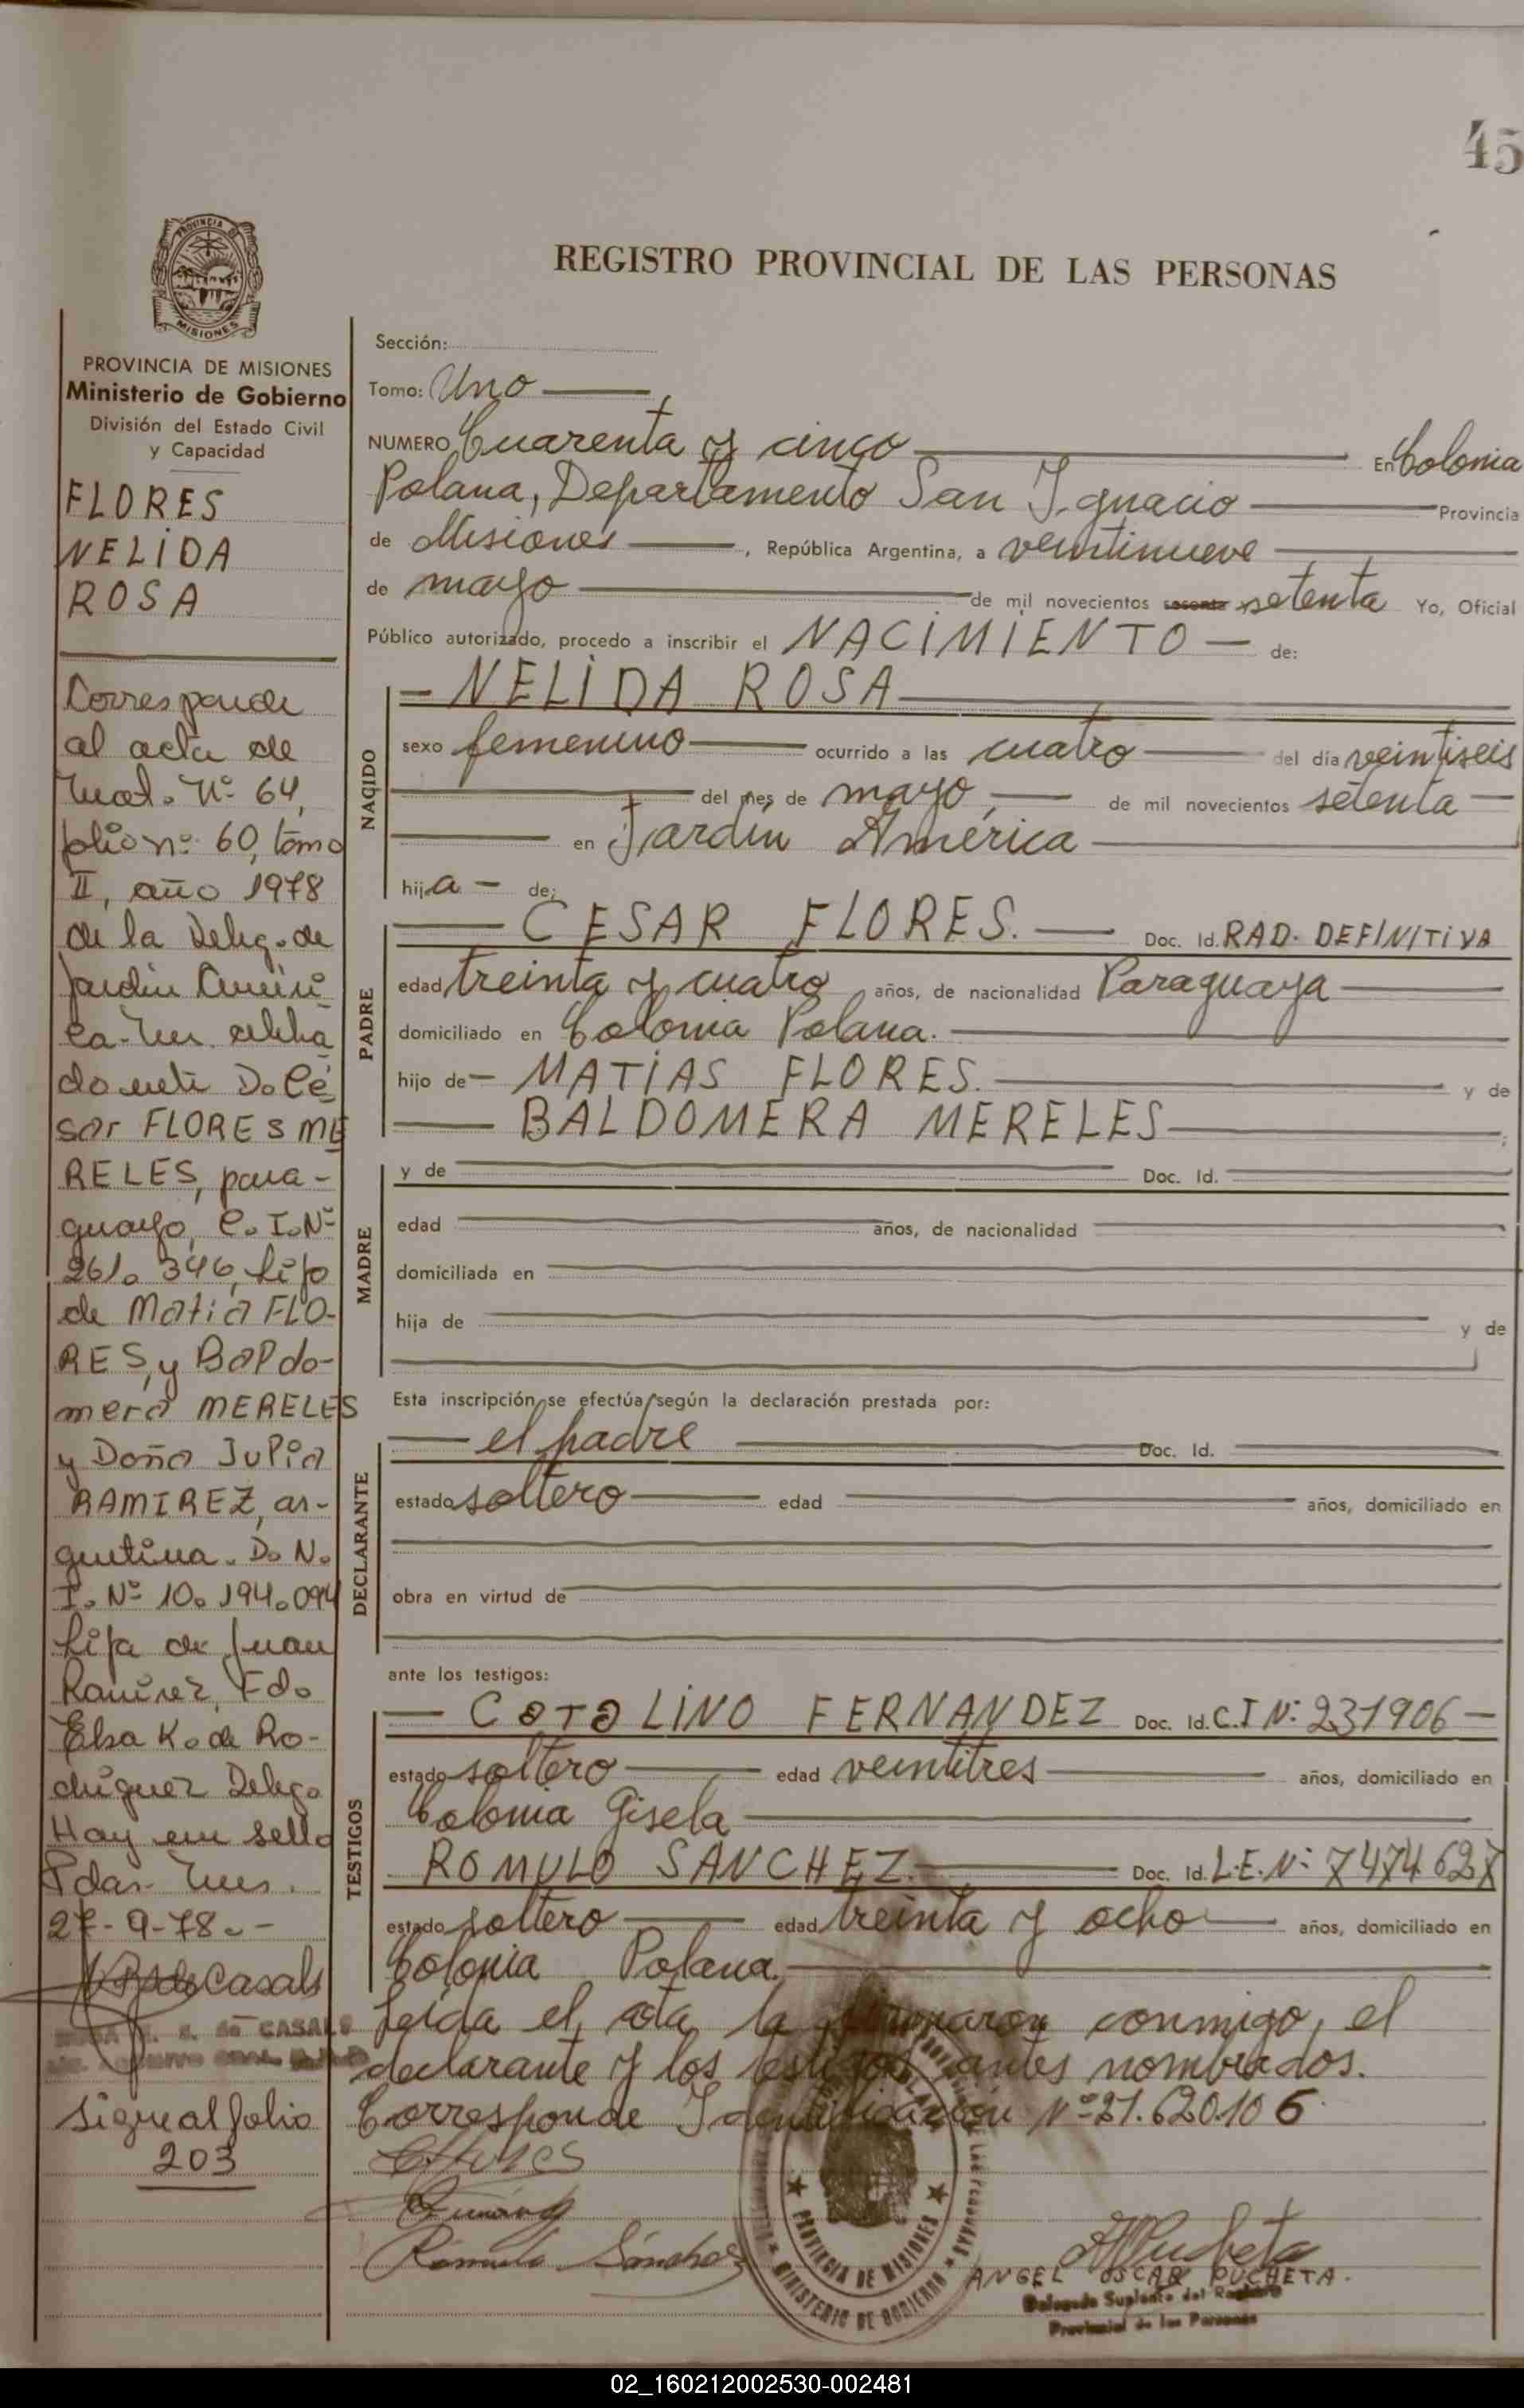 45
REGISTRO PROVINCIAL DE LAS PERSONAS
PROVINCIA DE MISIONES
Ministerio de Gobierno
División del Estado Civil
y Capacidad
FLORES
NELIDA
ROSA
Corresponde
al acta de
Mat. Nº 64,
folio nº 60, tomo
II, año 1978
de la Deleg. de
Jardín Améri
ca - Mnes.
do entre D. Cé
sar FLORES ME
RELES, para-
guayo, C. I. Nº
261. 346, hijo
de Matia FLO-
RES, y Baldo-
mera MERELES
y Doña Julia
RAMIREZ, ar-
gentina. D. N.
I. Nº 10. 194. 094
hija de Juan
Ramirez, Fdo
Elsa K. de Ro-
driguez Deleg.
Hay un sello
Pdas. Mnes.
27-9-78.-
de Casals
de CASALS
Sigue al folio
203
Sección:
Tomo: Uno
NUMERO Cuarenta y cinco En Colonia
Polana, Departamento San Ignacio Provincia
de Misiones, República Argentina, a veintinueve
de mayo de mil novecientos sesenta setenta Yo, Oficial
Público autorizado, procedo a inscribir el NACIMIENTO - de:
NACIDO
- NELIDA ROSA
sexo femenino ocurrido a las cuatro del día veintiseis
del mes de mayo, de mil novecientos setenta
en Jardín América
hija - de:
PADRE
CESAR FLORES. Doc. Id. RAD. DEFINITIVA
edad treinta y cuatro años, de nacionalidad Paraguaya
domiciliado en Colonia Polana.
hijo de - MATIAS FLORES. y de
BALDOMERA MERELES ;
MADRE
y de Doc. Id.
edad años, de nacionalidad
domiciliada en
hija de y de
Esta inscripción se efectúa según la declaración prestada por:
DECLARANTE
el padre Doc. Id.
estado soltero edad años, domiciliado en
obra en virtud de
ante los testigos:
TESTIGOS
CATALINO FERNANDEZ Doc. Id. C.I Nº 231906
estado soltero edad veintitres años, domiciliado en
Colonia Gisela
ROMULO SANCHEZ. Doc. Id. L.E. Nº 7474627
estado soltero edad treinta y ocho años, domiciliado en
Colonia Polana.
Leída el acta, la firmaron conmigo, el
declarante y los testigos antes nombrados.
Corresponde Identificación Nº 21.620.106
CFlores
Rómulo Sánchez
PROVINCIA DE MISIONES
MINISTERIO DE GOBIERNO
ANGEL OSCAR PUCHETA.
Delegado Suplente del Registro
Provincial de las Personas
02_160212002530-002481